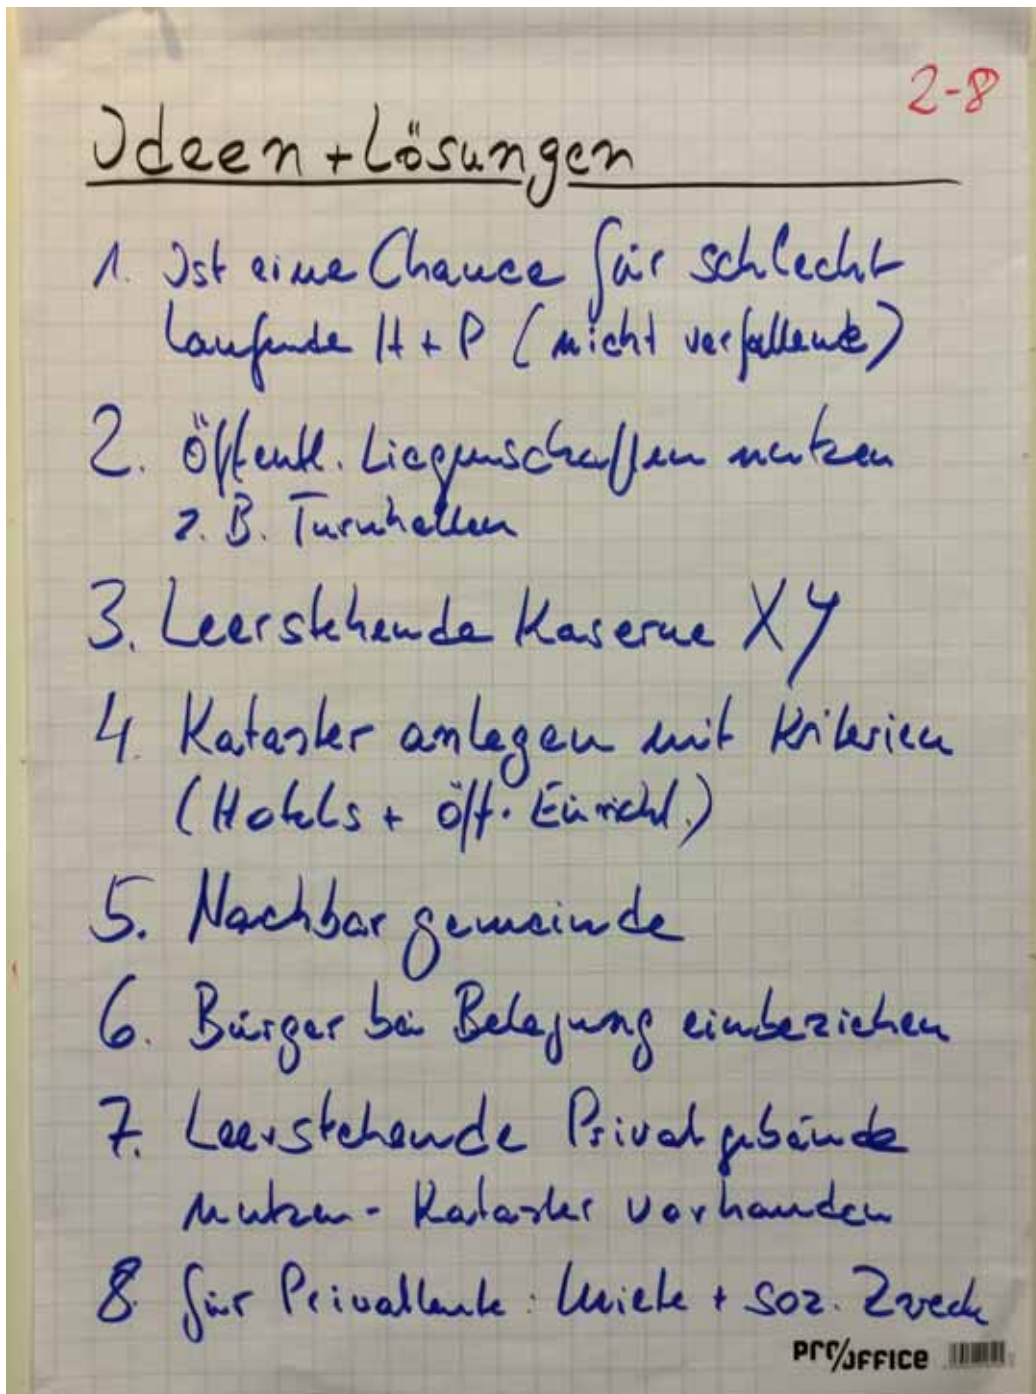 2-8
Ideen + Lösungen
1. Ist eine Chance für schlecht
laufende H + P (nicht verfallende)
2. Öffentl. Liegenschaften nutzen
z. B. Turnhallen
3. Leerstehende Kaserne XY
4. Kataster anlegen mit Kriterien
(Hotels + öff. Einricht.)
5. Nachbargemeinde
6. Bürger bei Belegung einbeziehen
7. Leerstehende Privatgebäude
nutzen - Kataster vorhanden
8. für Privatleute: Miete + soz. Zweck
PRO/OFFICE